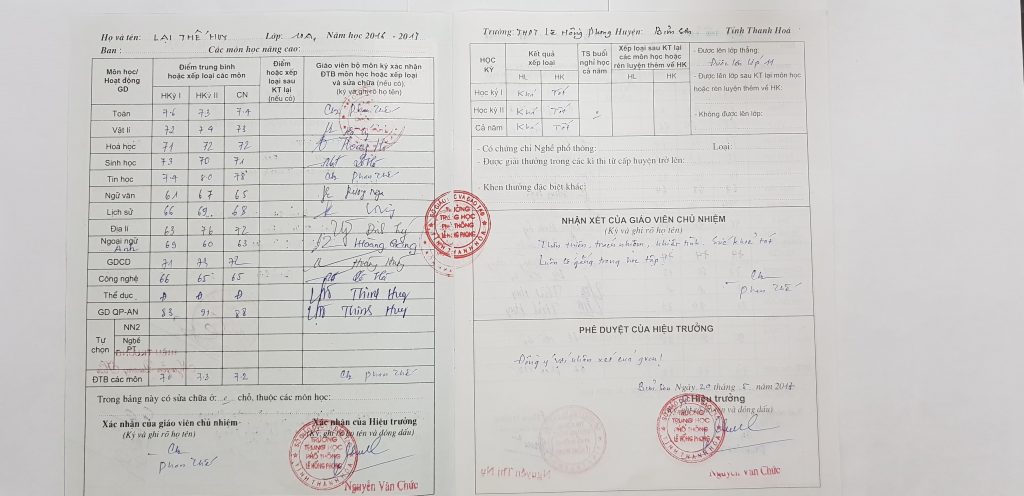 Họ và tên: LẠI THẾ HUY Lớp: 10A1 Năm học 2016 - 2017
Ban : Các môn học nâng cao:
Môn học/ Hoạt động GD
Điểm trung bình hoặc xếp loại các môn
Điểm hoặc xếp loại sau KT lại (nếu có)
Giáo viên bộ môn ký xác nhận ĐTB môn học hoặc xếp loại và sửa chữa (nếu có). (ký và ghi rõ họ tên)
HKỳ I HKỳ II CN
Toán 7.6 7.3 7.4
Vật lí 72 74 73
Hoá học 71 72 72
Sinh học 73 70 71
Tin học 7.4 8.0 78
Ngữ văn 61 67 65
Lịch sử 66 69 68
Địa lí 63 76 72
Ngoại ngữ Anh 69 60 63
GDCD 71 73 72
Công nghệ 66 65 65
Thể dục Đ Đ Đ Thịnh Huy
GD QP-AN 83 91 88 Thịnh Huy
Tự chọn
NN2
Nghề PT
ĐTB các môn 7.0 7.3 7.2
Trong bảng này có sửa chữa ở: 0 chỗ, thuộc các môn học:
Xác nhận của giáo viên chủ nhiệm
(Ký và ghi rõ họ tên)
Xác nhận của Hiệu trưởng
(Ký, ghi rõ họ tên và đóng dấu)
TRƯỜNG TRUNG HỌC PHỔ THÔNG LÊ HỒNG PHONG
Nguyễn Văn Chức
Trường: THPT Lê Hồng Phong Huyện: Bỉm Sơn Tỉnh Thanh Hoá
HỌC KỲ
Kết quả xếp loại
HL HK
TS buổi nghỉ học cả năm
Xếp loại sau KT lại các môn học hoặc rèn luyện thêm về HK
HL HK
Học kỳ I Khá Tốt
Học kỳ II Khá Tốt
Cả năm Khá Tốt
- Được lên lớp thẳng:
Được lên lớp 11
- Được lên lớp sau KT lại môn học hoặc rèn luyện thêm về HK:
- Không được lên lớp:
- Có chứng chỉ Nghề phổ thông: Loại:
- Được giải thưởng trong các kì thi từ cấp huyện trở lên:
- Khen thưởng đặc biệt khác:
TRƯỜNG TRUNG HỌC PHỔ THÔNG LÊ HỒNG PHONG
NHẬN XÉT CỦA GIÁO VIÊN CHỦ NHIỆM
(Ký và ghi rõ họ tên)
Sức khoẻ tốt
Luôn cố gắng trong học tập
PHÊ DUYỆT CỦA HIỆU TRƯỞNG
Đồng ý với nhận xét của gvcn!
Bỉm Sơn Ngày 20 tháng 5 năm 2017
Hiệu trưởng
(Ký, ghi rõ họ tên và đóng dấu)
TRƯỜNG TRUNG HỌC PHỔ THÔNG LÊ HỒNG PHONG
Nguyễn Văn Chức